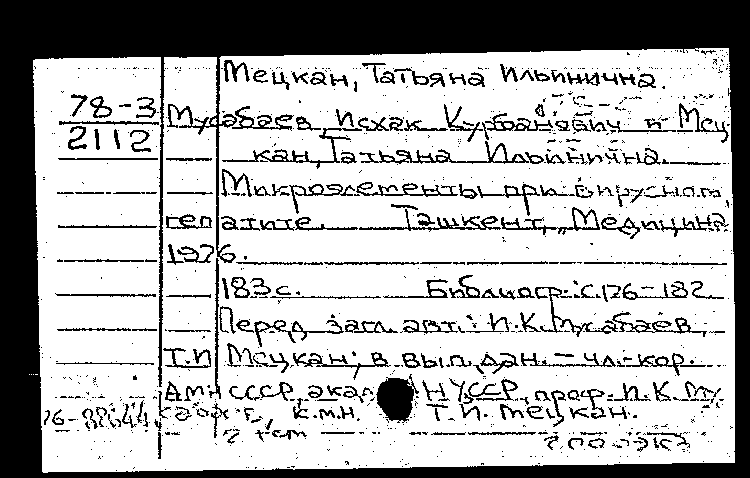 Мецкан, Татьяна Ильинична.
78-3
2112
Мусабаев, Исхак Курбанович и Мец
кан, Татьяна Ильинична.
Микроэлементы при вирусном
гепатите. Ташкент, „Медицина
1976.
183 с. Библиогр.: с. 126-182.
Перед загл. авт.: И.К. Мусабаев,
Т.И Мецкан; в вып. дан. – чл.-кор.
АМН СССР, акад. НУССР, проф. И.К. Му
к.м.н. Т.И. Мецкан.